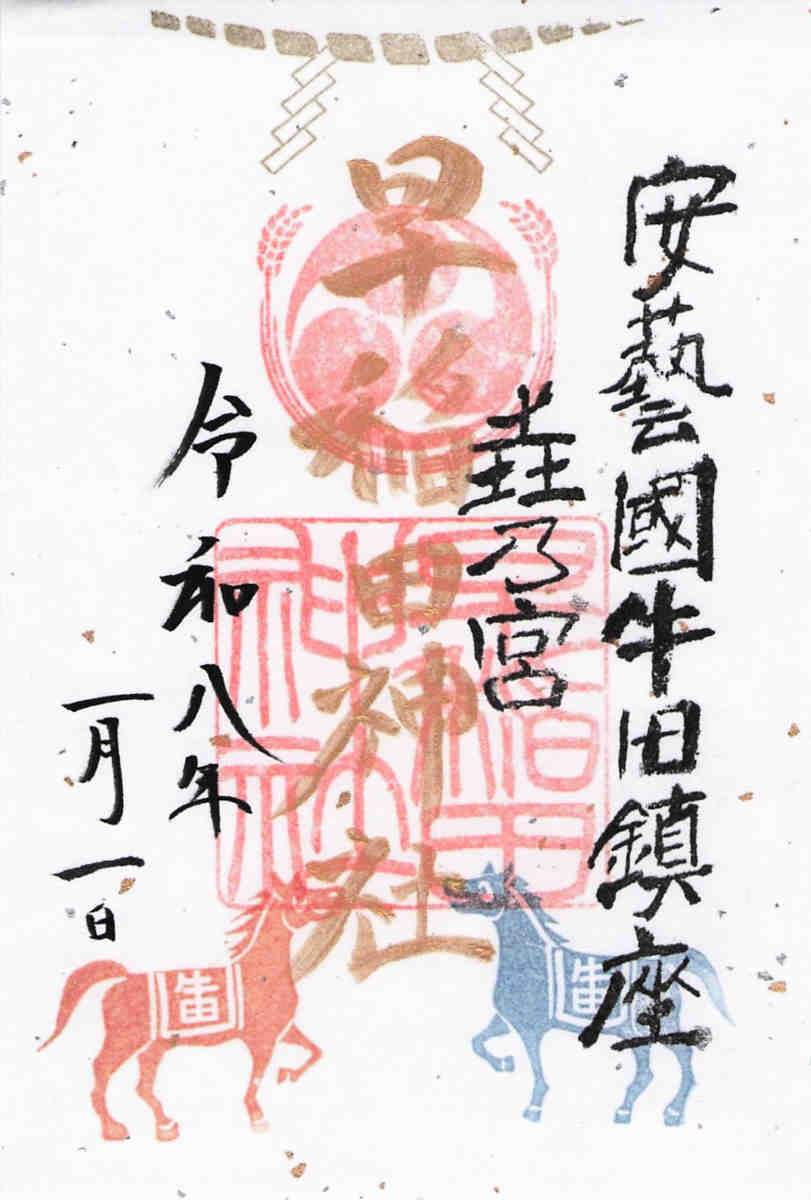 安藝國牛田鎮座
垚乃宮
早稲田神社
早稲田
神社
令和八年
一月一日
牛田
牛田